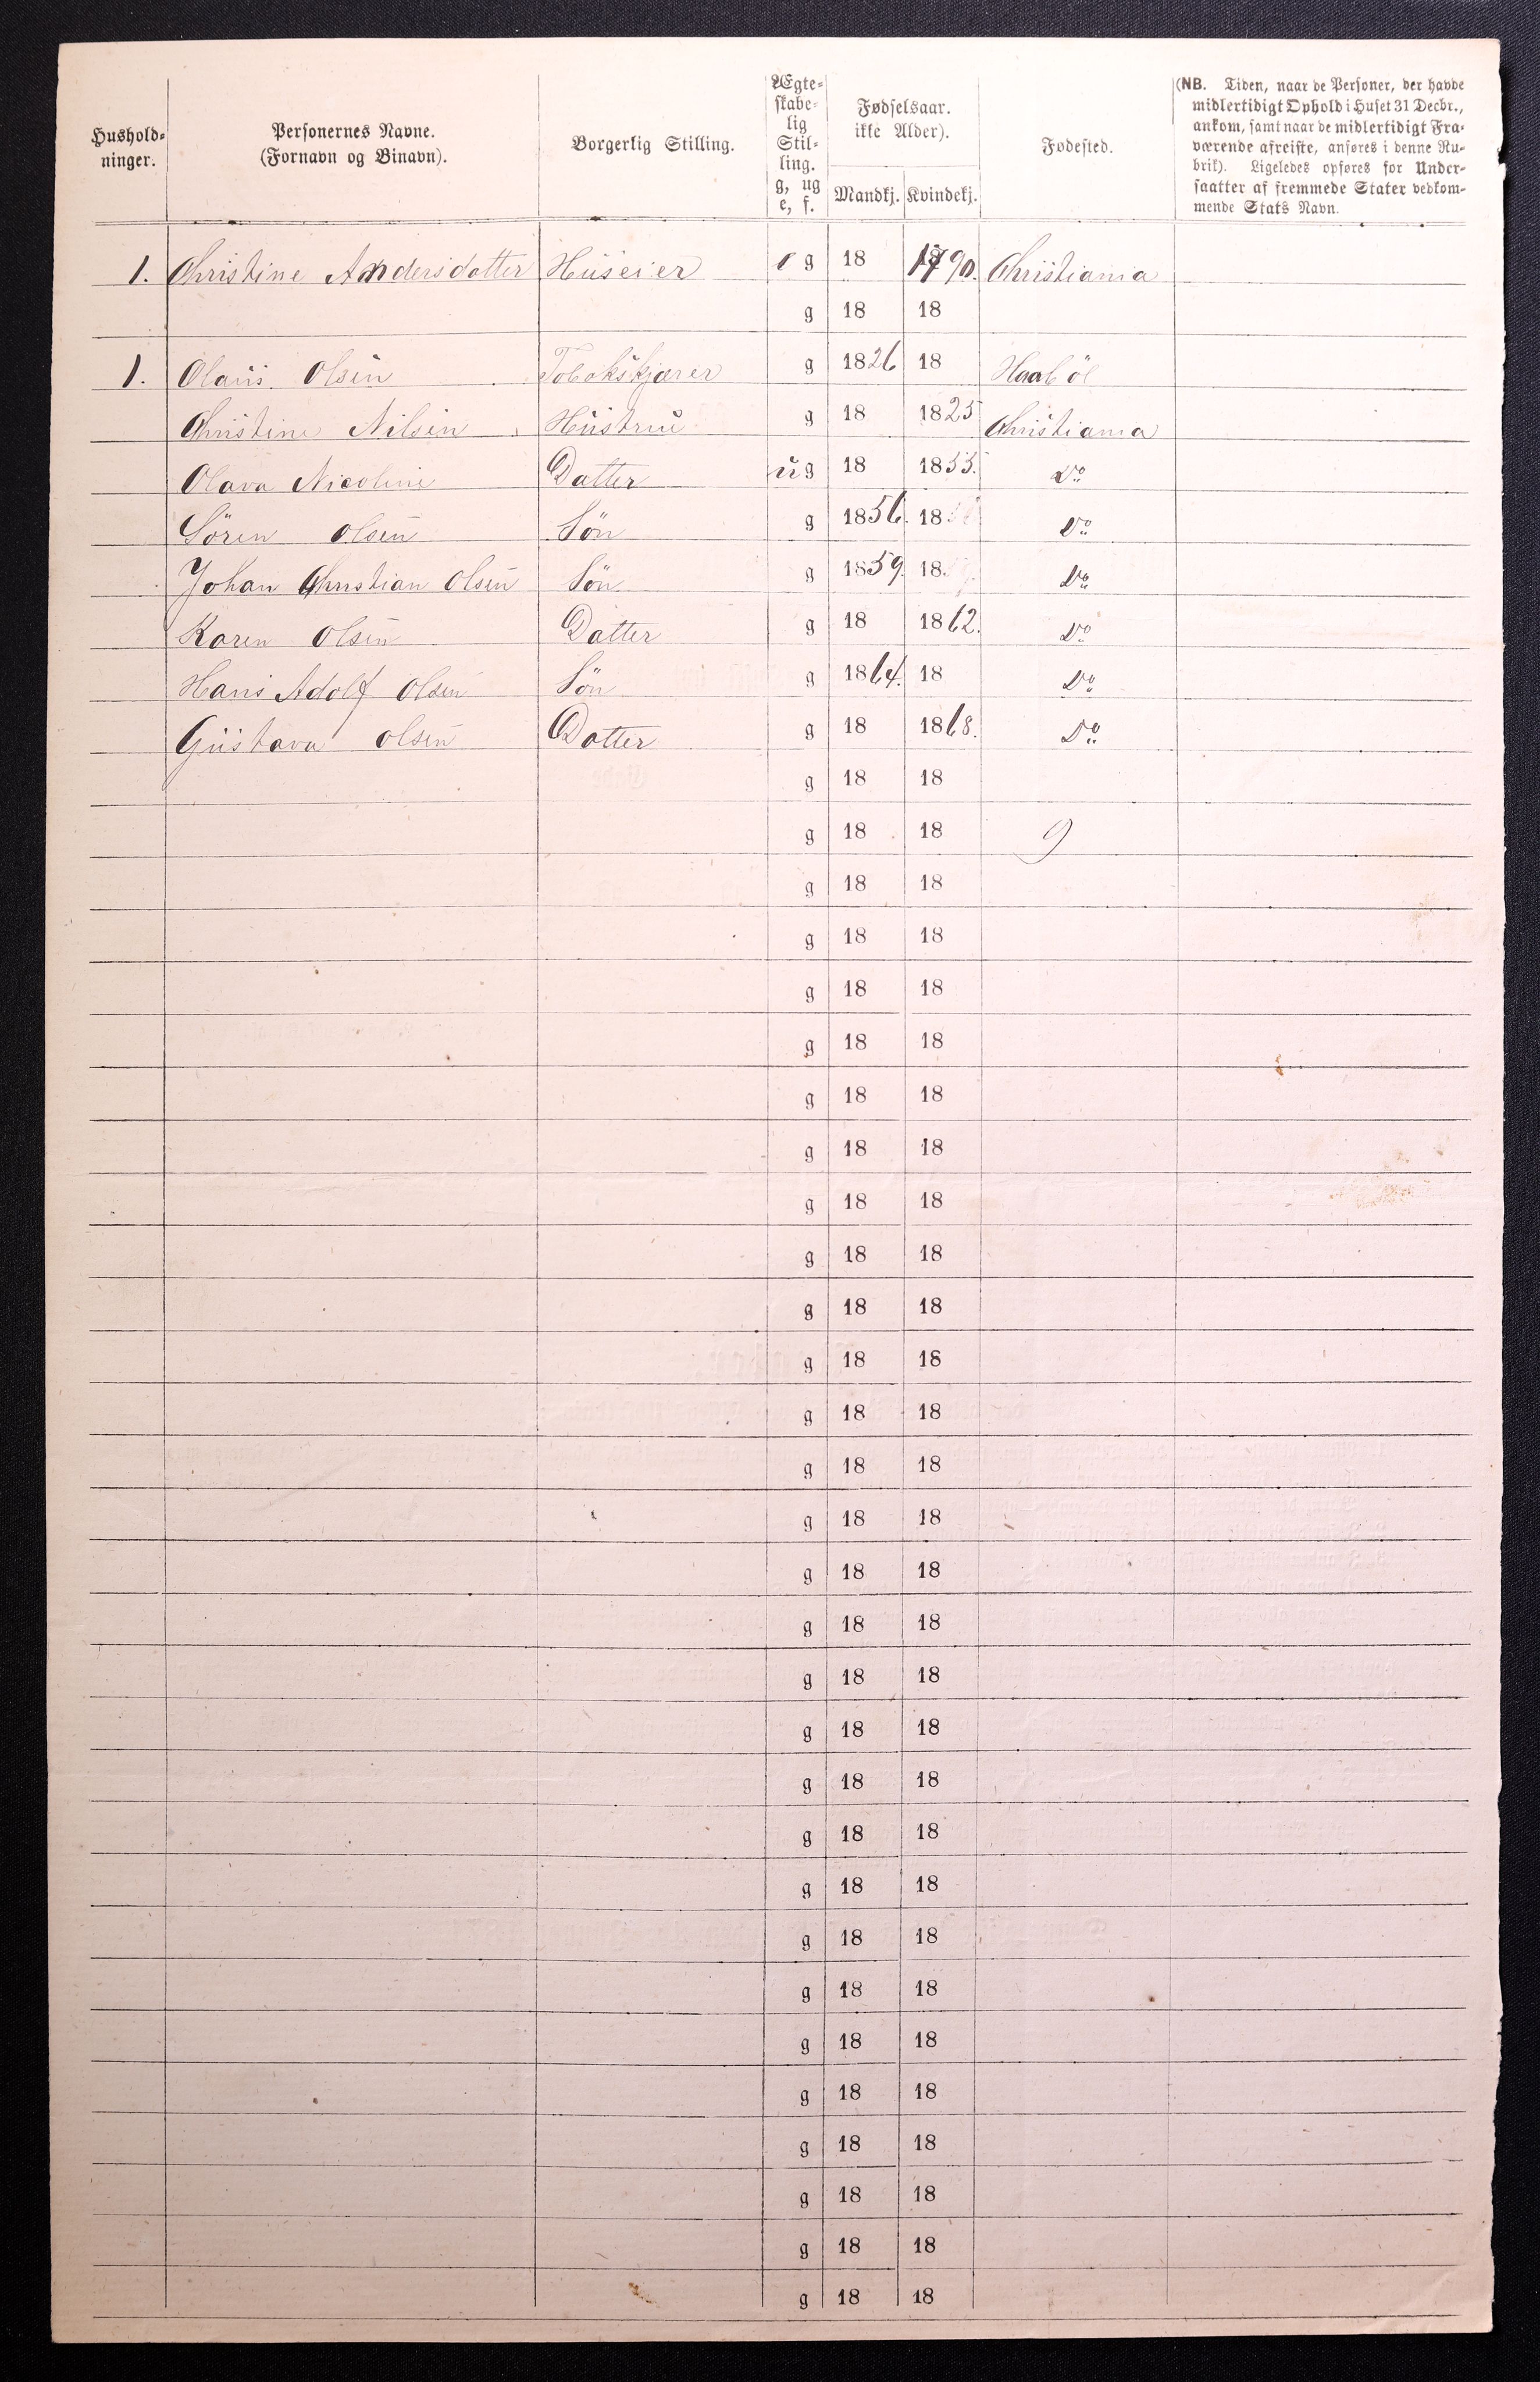 Hushold-
ninger.
Personernes Navne.
(Fornavn og Binavn).
Borgerlig Stilling.
Ægte-
skabe-
lig
Stil-
ling.
g, ug
e, f.
Fødselsaar.
ikke Alder).
Mandkj. Kvindekj.
Fødested.
(NB. Tiden, naar de Personer, der havde
midlertidigt Ophold i Huset 31 Decbr.,
ankom, samt naar de midlertidigt Fra-
værende afreiste, anføres i denne Ru-
brik). Ligeledes opføres for Under-
saatter af fremmede Stater vedkom-
mende Stats Navn.
1. Christine Andersdatter Huseier e g 18 1790. Christiania
g 18 18
1. Olaus Olsen Tobakskjærer g 1826 18 Haaböl
Christine Nilsen Hustru g 18 1825 Christiania
Olava Nicoline Datter ug 18 1853. Do
Sören Olsen Sön g 1856. 18 Do
Johan Christian Olsen Sön g 1859. 18 Do
Karen Olsen Datter g 18 1862. Do
Hans Adolf Olsen Sön g 1864. 18 Do
Gustava Olsen Datter g 18 1868. Do
g 18 18
g 18 18 9
g 18 18
g 18 18
g 18 18
g 18 18
g 18 18
g 18 18
g 18 18
g 18 18
g 18 18
g 18 18
g 18 18
g 18 18
g 18 18
g 18 18
g 18 18
g 18 18
g 18 18
g 18 18
g 18 18
g 18 18
g 18 18
g 18 18
g 18 18
g 18 18
g 18 18
g 18 18
g 18 18
g 18 18